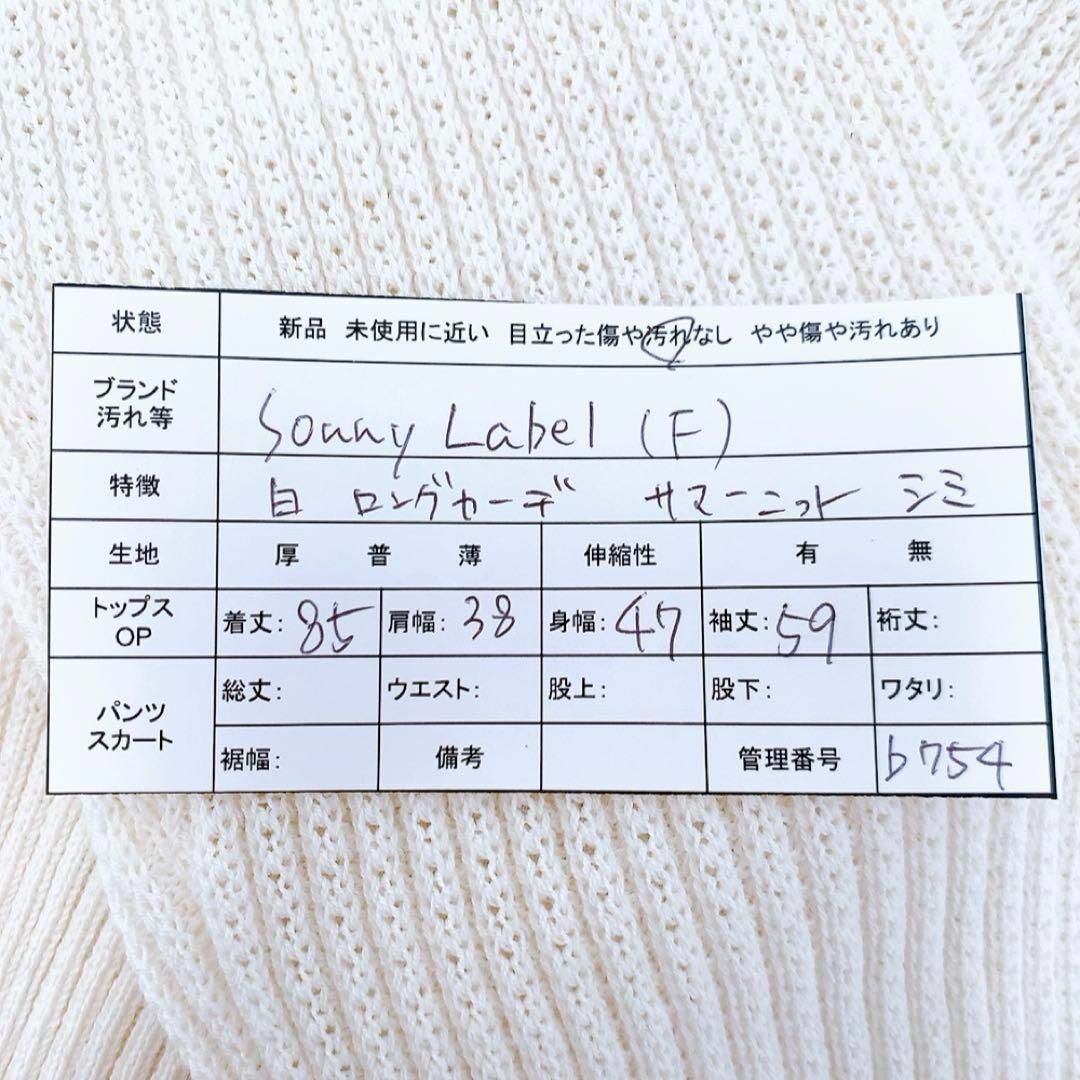 状態 新品 未使用に近い 目立った傷や汚れなし やや傷や汚れあり
ブランド
汚れ等 Sonny Label (F)
特徴 白 ロングカーデ サマーニット シミ
生地 厚 普 薄 伸縮性 有 無
トップス
OP 着丈: 85 肩幅: 38 身幅: 47 袖丈: 59 裄丈:
パンツ
スカート 総丈: ウエスト: 股上: 股下: ワタリ:
裾幅: 備考 管理番号 b754